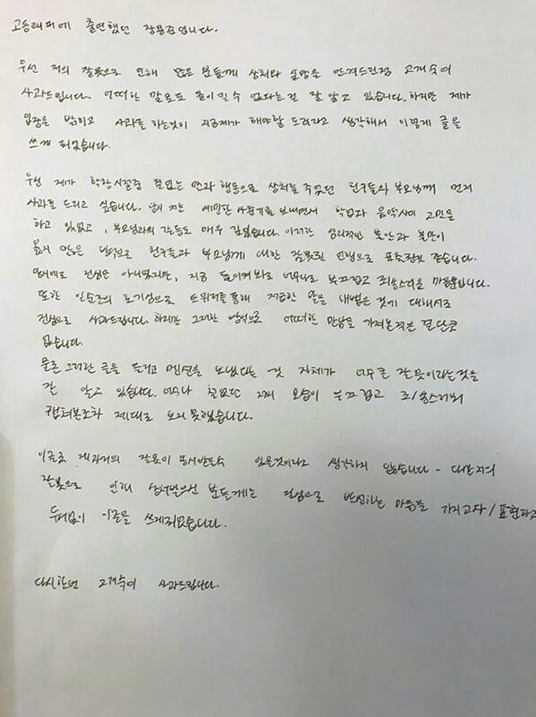 고등래퍼에 출연했던 장용준입니다.
우선 저의 잘못으로 인해 많은 분들께 상처와 실망을 안겨드린점 고개숙여
사과드립니다. 어떠한 말로도 용서될 수 없다는걸 잘 알고 있습니다. 하지만 제가
입장을 밝히고 사과를 하는것이 지금제가 해야할 도리라고 생각해서 이렇게 글을
쓰게 되었습니다.
우선 제가 학창시절중 철없는 말과 행동으로 상처를 주었던 친구들과 부모님께 먼저
사과를 드리고 싶습니다. 당시 저는 예민한 사춘기를 보내면서 학업과 음악사이 고민을
하고 있었고, 부모님과의 갈등도 매우 깊었습니다. 이러한 심리적인 불안과 불만이
옳지 않은 방식으로 친구들과 부모님께 대한 잘못된 언행으로 표출됐던 것 같습니다.
단 진심은 아니었지만, 지금 돌이켜봐도 너무나도 부끄럽고 죄송스러운 마음뿐입니다.
또한 순간의 호기심으로 트위터를 통해 저급한 말을 내뱉은 것에 대해서도
진심으로 사과드립니다. 하지만 그러한 방식으로 어떠한 만남을 가져본적은 결단코
없습니다.
물론 그러한 글을 올리고 멘션을 보냈다는 것 자체가 너무 큰 잘못이라는것을
잘 알고 있습니다. 너무나 철없던 모습이 부끄럽고 죄송스러워
캡쳐본조차 제대로 보지 못했습니다.
이글로 제과거의 잘못이 용서받을수 있을것이라고 생각하지 않습니다 - 다만 저의
잘못으로 인해 상처받으신 분들께는 진심으로 반성하는 마음을 가지고 표현하고
두서없이 이글을 쓰게되었습니다.
다시한번 고개숙여 사과드립니다.